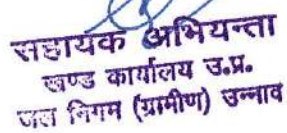 सहायक अभियन्ता
खण्ड कार्यालय उ.प्र.
जल निगम (ग्रामीण) उन्नाव